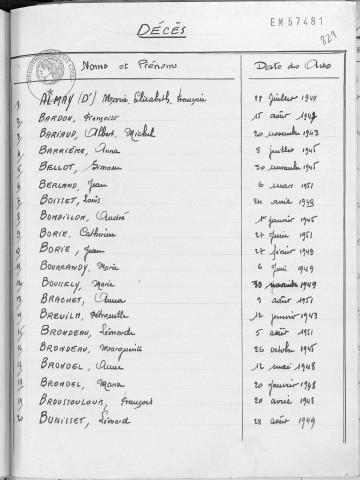 DÉCÈS
EM57481
829
Noms et Prénoms
Date des Actes
1 ALMAY (D') Marie, Elisabeth, Françoise juillet 194
2 BARDON, Françoise 15 août 194
3 BARIAUD, Albert, Michel 20 novembre 1943
4 BARRIÈRE, Anna 8 juillet 1945
5 BELLOT, Simone 30 novembre 1945
6 BERLAND, Jean 6 mars 1951
7 BOISSET, Louis avril 1948
8 BOMBILLON, André 1er janvier 1945
9 BORIE, Catherine 27 juin 1951
10 BORIE, Jean 27 février 1949
11 BOURRANDY, Marie 6 juin 1949
12 Marie 30 novembre 1949
13 BRACHET, Anna 9 août 1951
14 BREUILH, Pétronille 12 janvier 1943
15 BRONDEAU, Léonarde 5 août 1951
16 BRONDEAU, Marguerite 26 octobre 1945
17 BRONDEL, Anne 12 mai 1948
18 BRONDEL, Maria 20 janvier 1948
19 BROUSSOULOUX, François 20 avril 1948
20 BUNISSET, Léonard 28 août 1949